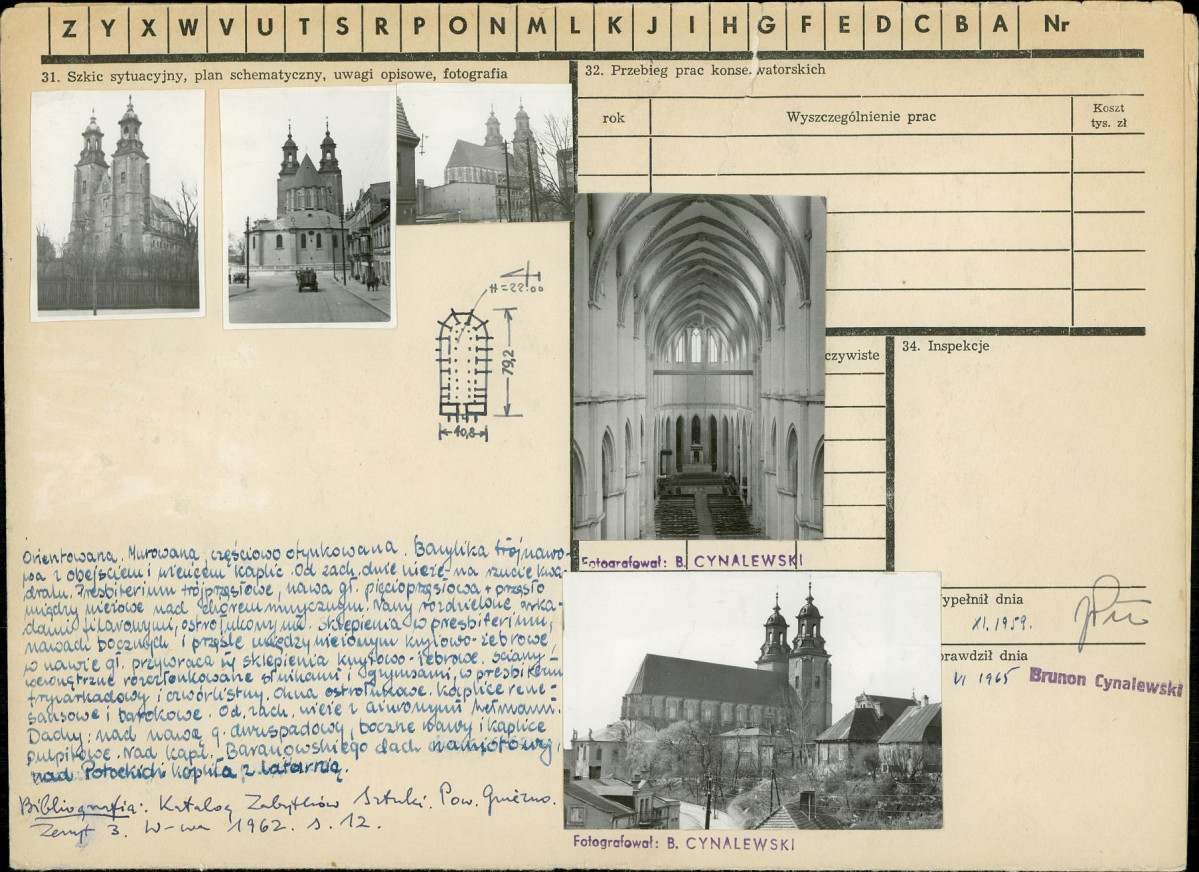 Z Y X W V U T S R P O N M L K J I H G F E D C B A Nr
31. Szkic sytuacyjny, plan schematyczny, uwagi opisowe, fotografia
32. Przebieg prac konserwatorskich
rok
Wyszczególnienie prac
Koszt
tys. zł
H=22.00
79,2
40,8
czywiste
34. Inspekcje
Fotografował: B. CYNALEWSKI
Orientowana. Murowana, częściowo otynkowana. Bazylika trójnawo-
wa z obejściem i wieńcem kaplic. Od zach. dwie wieże na rzucie kwa-
dratu. Prezbiterium trójprzęsłowe, nawa gł. pięcioprzęsłowa + przęsło
między wieżowe nad chórem muzycznym. Nawy rozdzielone arka-
dami filarowymi, ostrołukowymi. Sklepienia w prezbiterium,
nawach bocznych i przęśle między wieżowym krzyżowo-żebrowe,
w nawie gł. przywraca się sklepienia krzyżowo-żebrowe. Ściany
wewnętrzne rozczłonkowane służkami i gzymsami, w prezbiterium
fryz arkadowy i czwórlistny. Okna ostrołukowe. Kaplice rene-
sansowe i barokowe. Od zach. wieże z ażurowymi hełmami.
Dachy: nad nawą g. dwuspadowy, boczne nawy i kaplice
pulpitowe. Nad kapl. Baranowskiego dach namiotowy,
nad Potockich kopuła z latarnią.
Bibliografia: Katalog Zabytków Sztuki. Pow. Gniezno.
Zeszyt 3. W-wa 1962. s. 12.
ypełnił dnia
XI. 1959.
prawdził dnia
VI 1965 Brunon Cynalewski
Fotografował: B. CYNALEWSKI